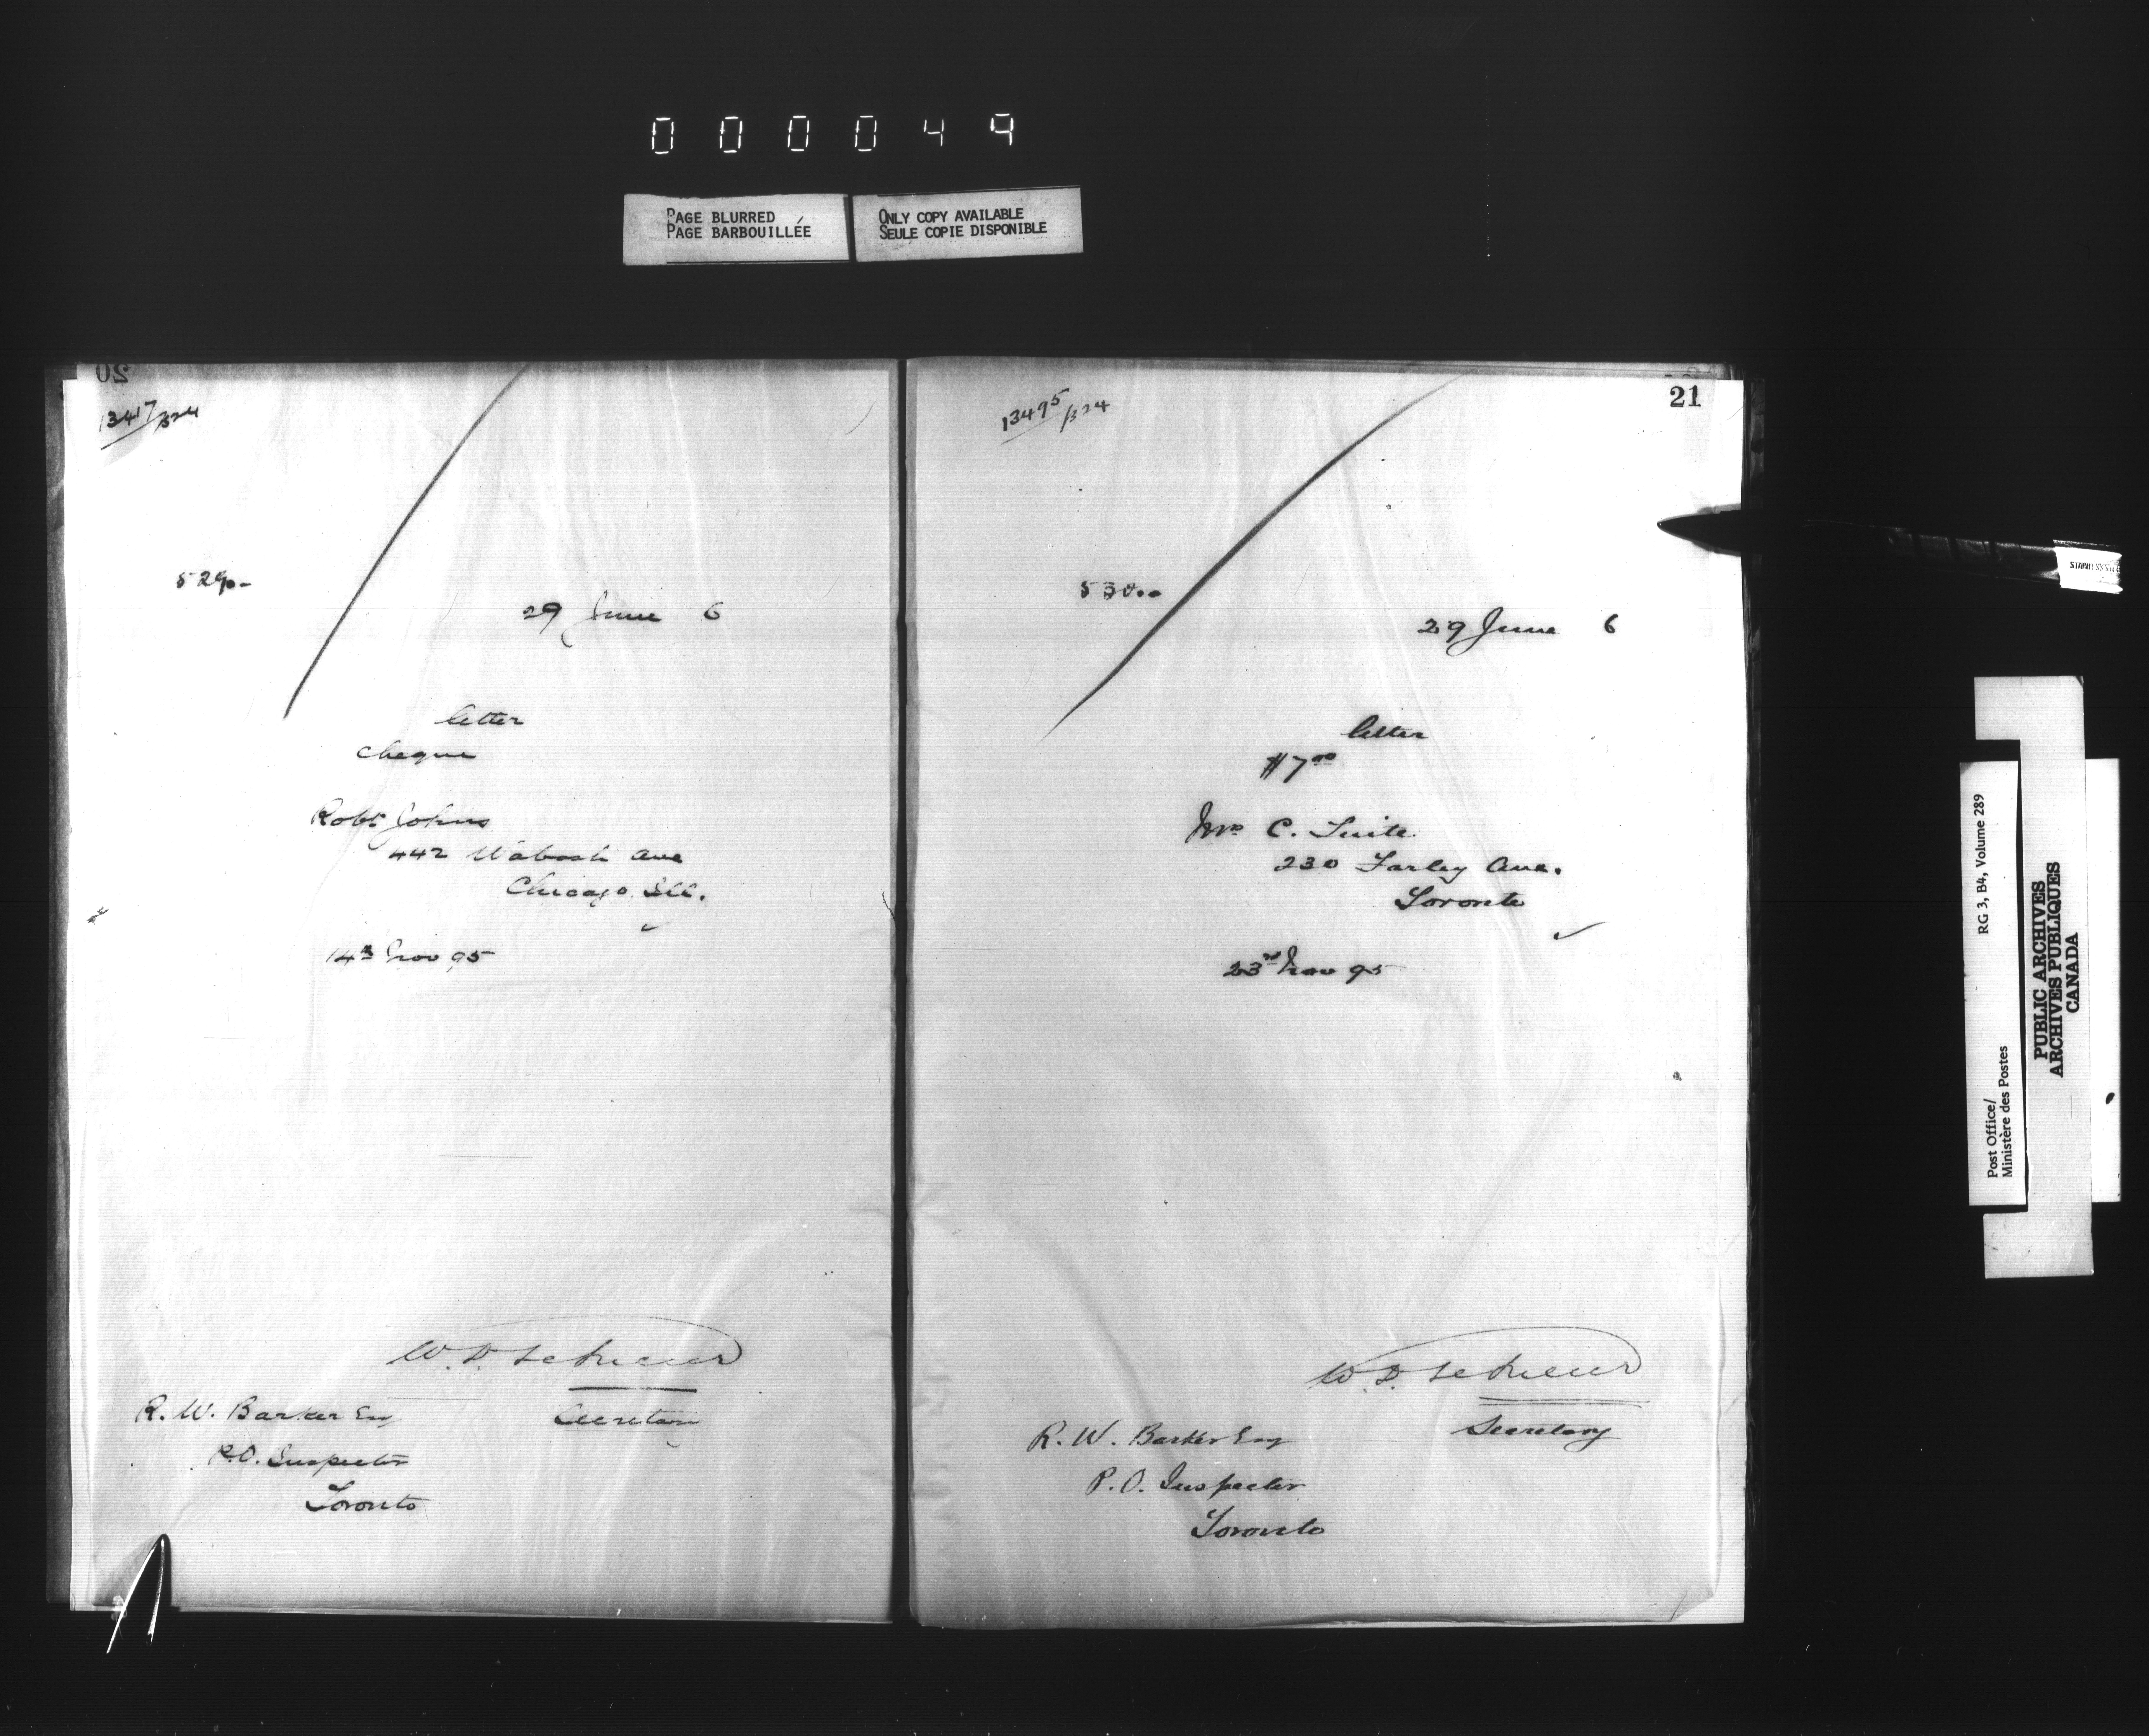 000049
PAGE BLURRED
PAGE BARBOUILLÉE
ONLY COPY AVAILABLE
SEULE COPIE DISPONIBLE
20
13417/324
5290-
29 June 6
letter
cheque
Robt Johns
442 Wabash Ave
Chicago Ill.
14th Nov 95
Secretary
R. W. Barker Esq
P.O. Inspector
Toronto
21
13495/324
29 June 6
letter
$7 00
Mrs C. Tuite
230 Farley Ave.
Toronto
23rd Nov 95
Secretary
R. W. Barker Esq
P. O. Inspector
Toronto
Post Office/
Ministère des Postes
RG 3, B4, Volume 289
PUBLIC ARCHIVES
ARCHIVES PUBLIQUES
CANADA